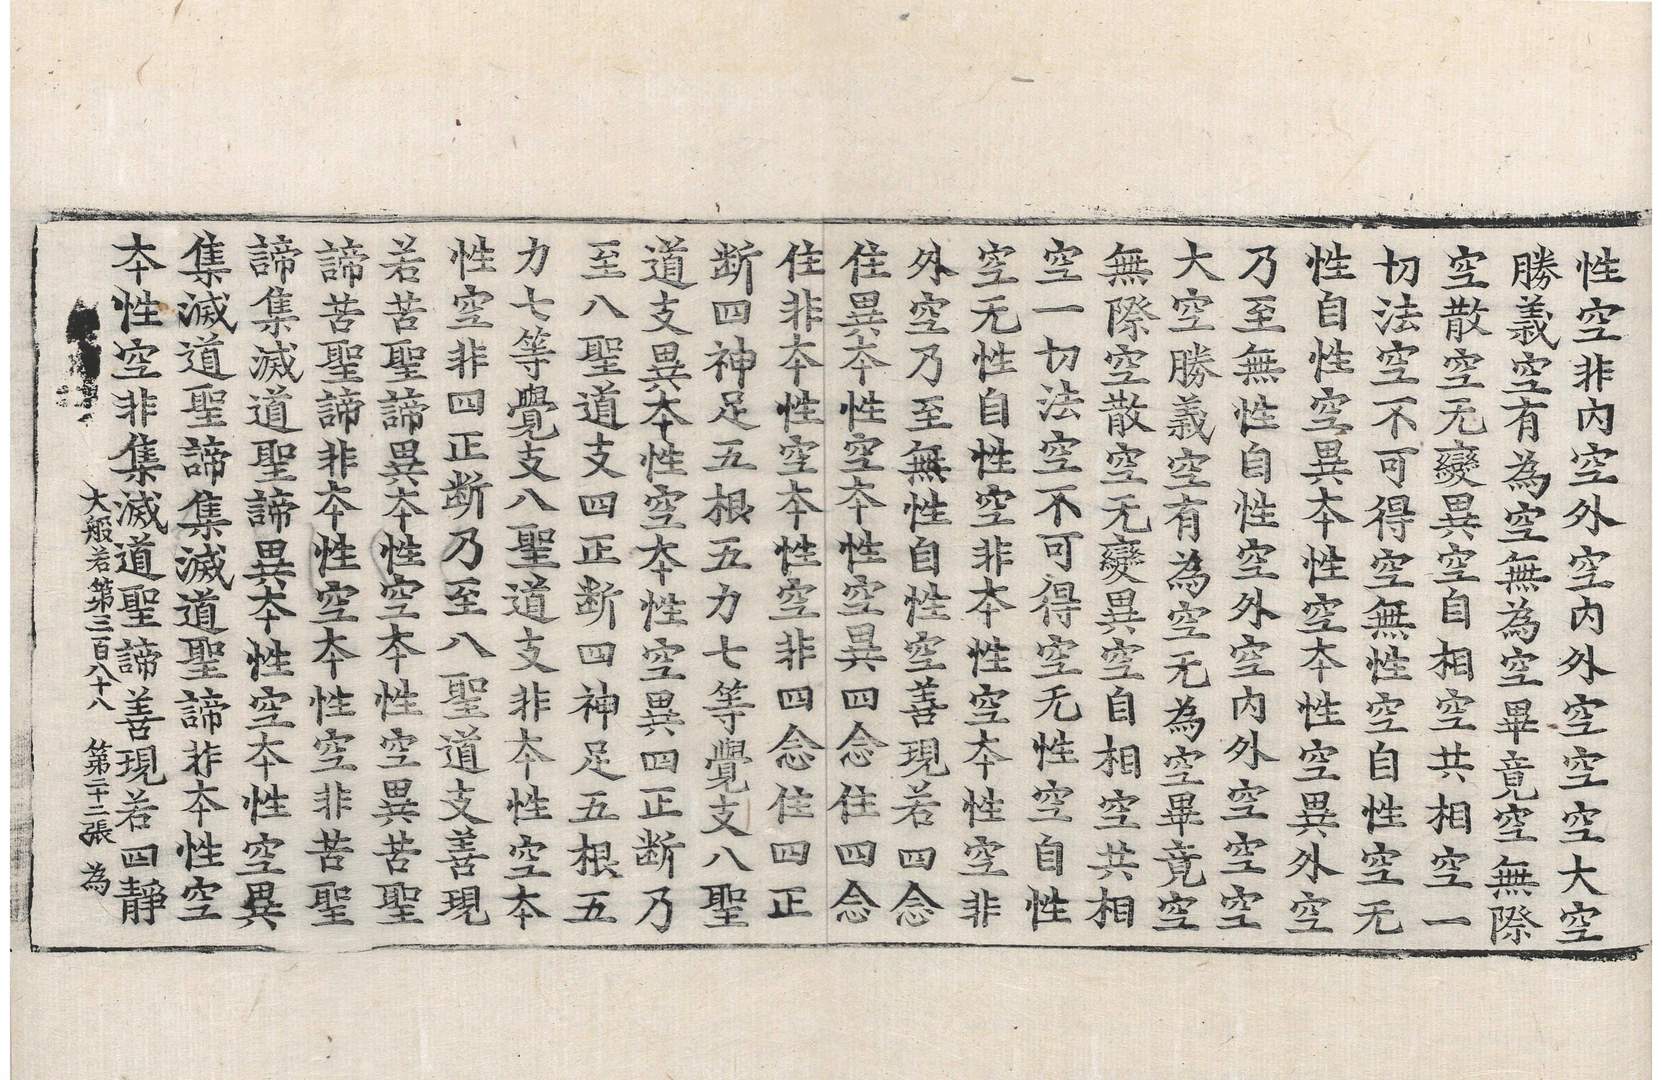 性空非內空外空内外空空空大空
勝義空有為空無為空畢竟空無際
空散空无變異空自相空共相空一
切法空不可得空無性空自性空无
性自性空異本性空本性空異外空
乃至無性自性空外空内外空空空
大空勝義空有為空无為空畢竟空
無際空散空无變異空自相空共相
空一切法空不可得空无性空自性
空无性自性空非本性空本性空非
外空乃至無性自性空善現若四念
住異本性空本性空異四念住四念
住非本性空本性空非四念住四正
断四神足五根五力七等覺支八聖
道支異本性空本性空異四正断乃
至八聖道支四正断四神足五根五
力七等覺支八聖道支非本性空本
性空非四正断乃至八聖道支善現
若苦聖諦異本性空本性空異苦聖
諦苦聖諦非本性空本性空非苦聖
諦集滅道聖諦異本性空本性空異
集滅道聖諦集滅道聖諦非本性空
本性空非集滅道聖諦善現若四靜
大般若第三百八十八 第二十二張 為